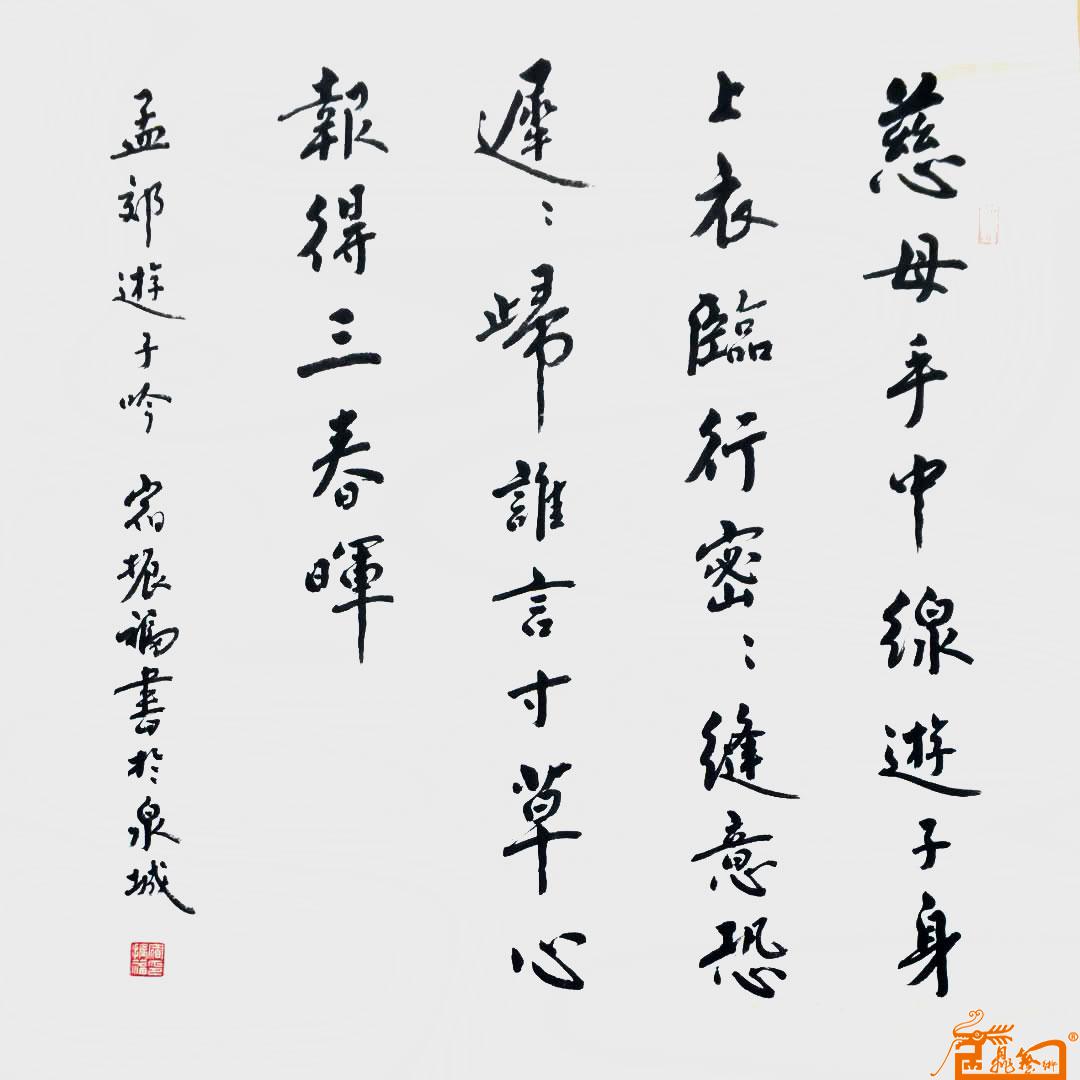 慈母手中線遊子身
上衣臨行密〻縫意恐
遲〻歸誰言寸草心
報得三春暉
孟郊遊子吟 宿振福書於泉城